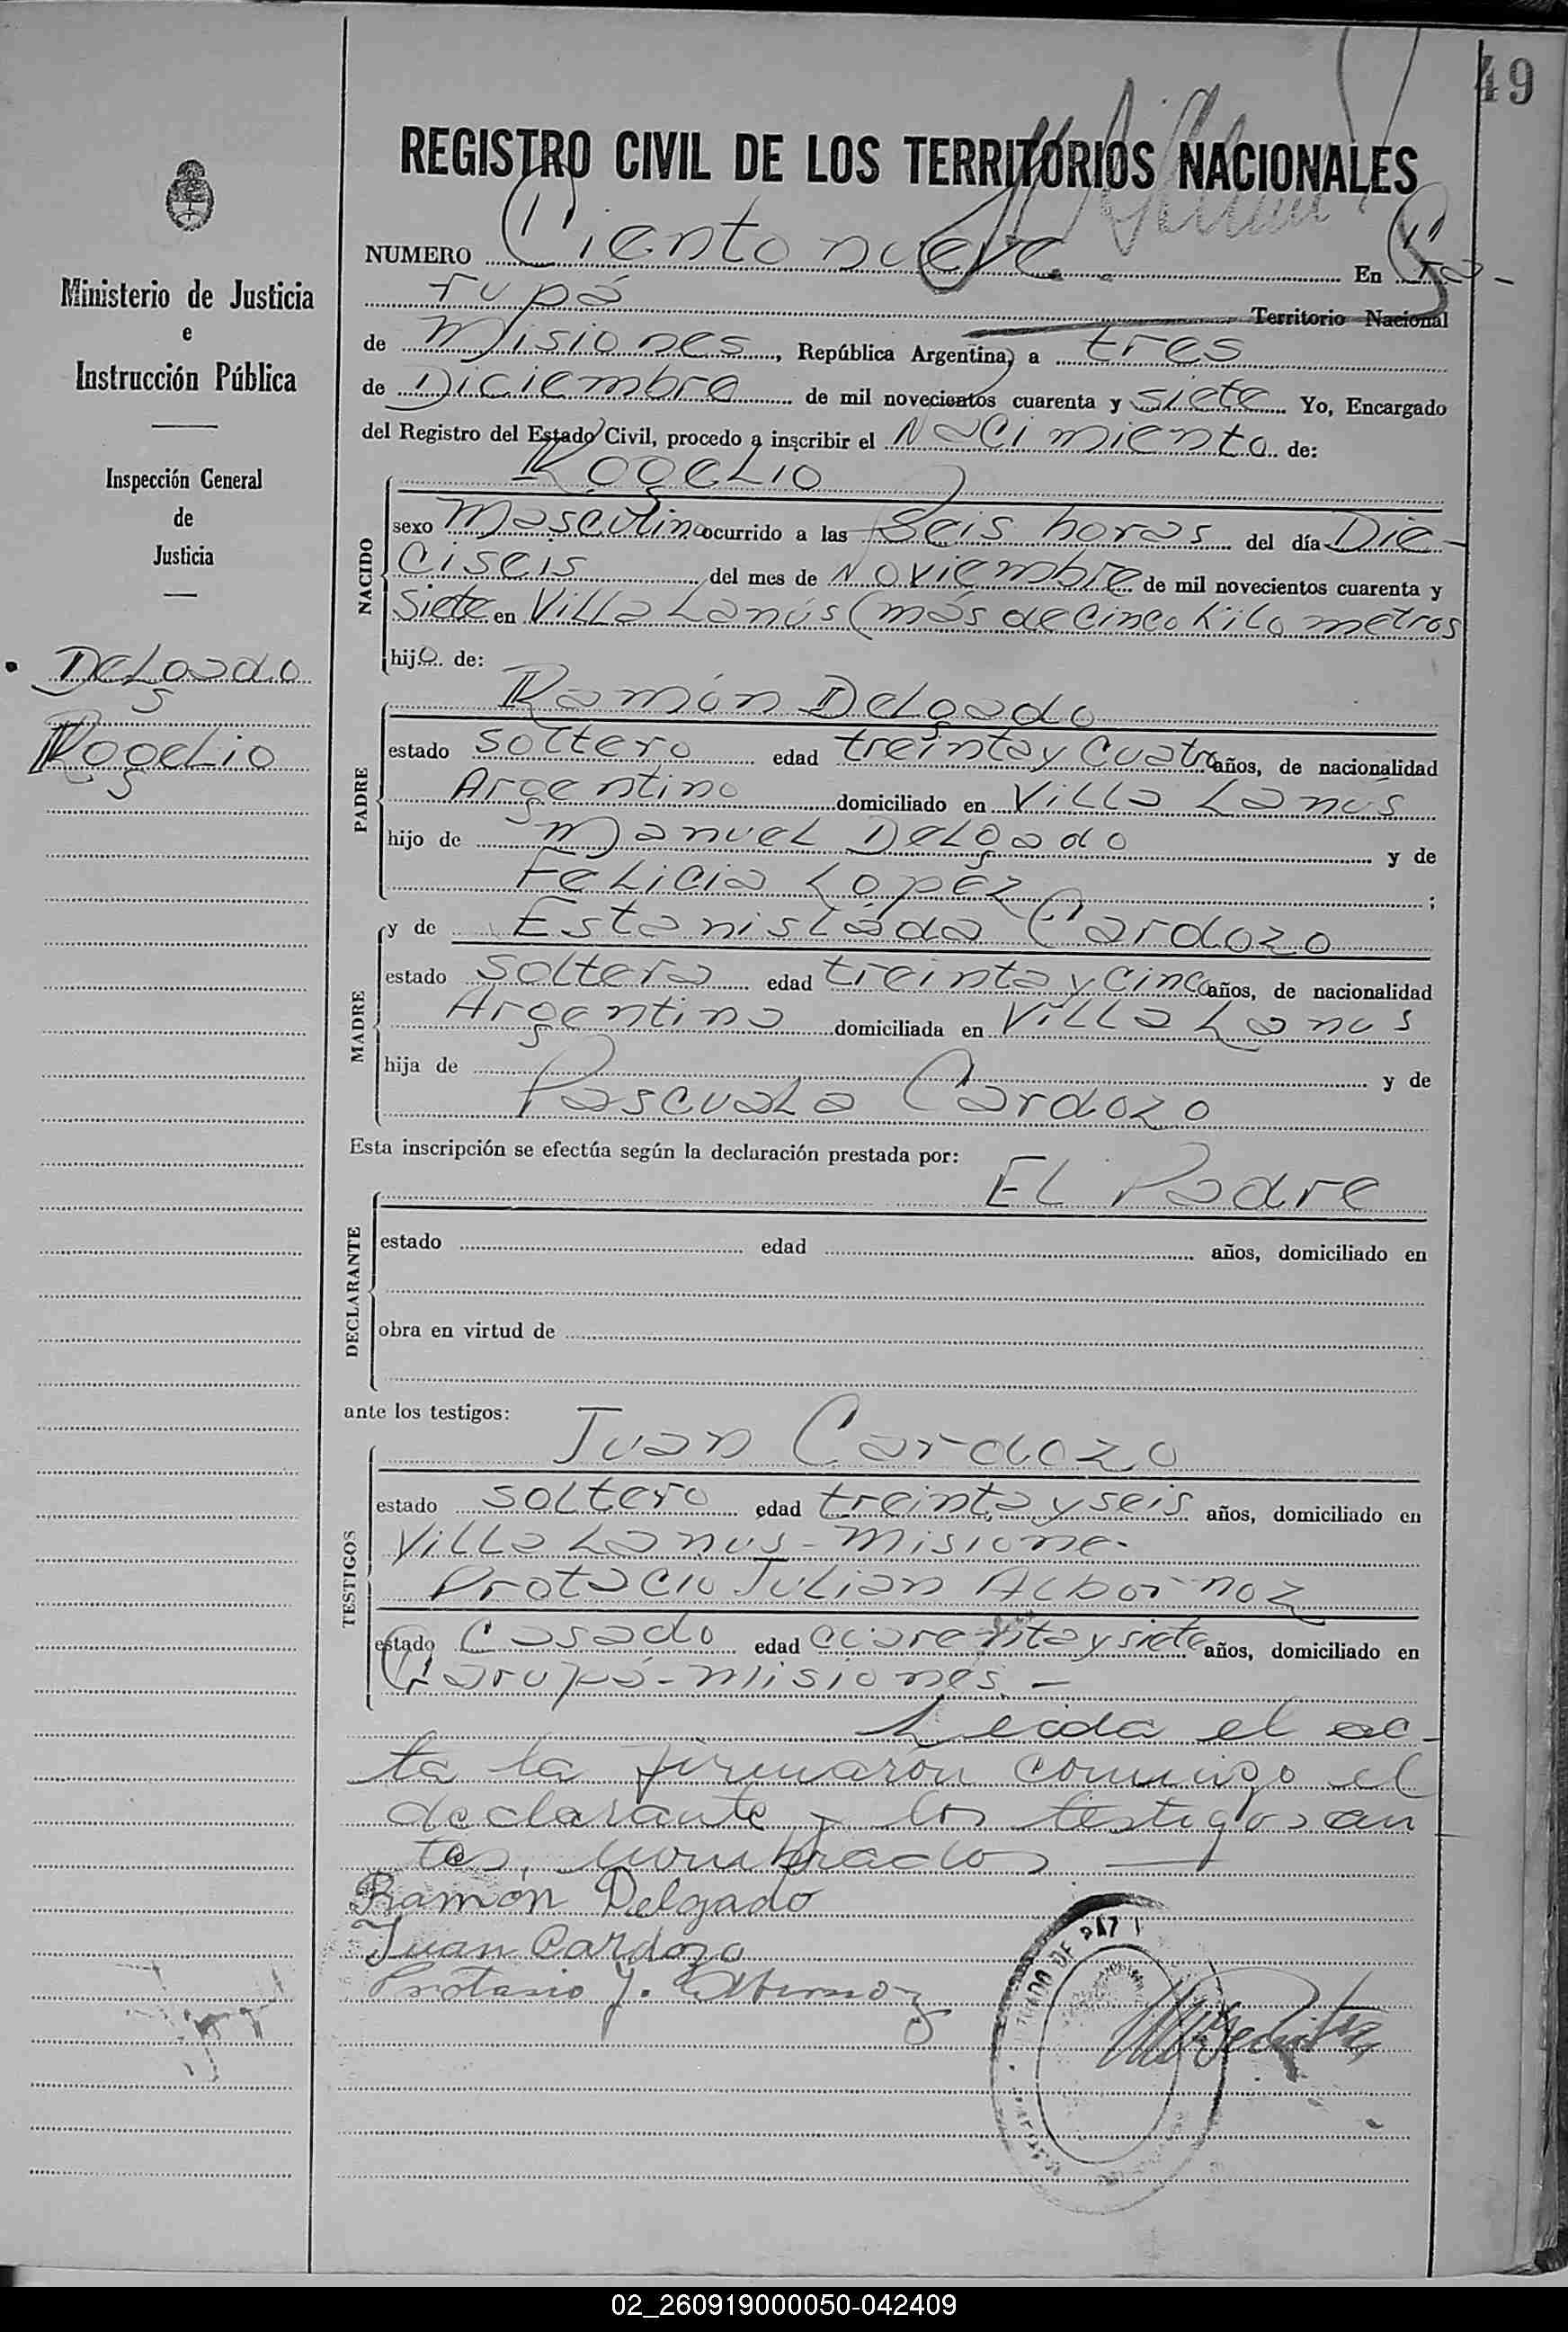 49
REGISTRO CIVIL DE LOS TERRITORIOS NACIONALES
Ministerio de Justicia
e
Instrucción Pública
Inspección General
de
Justicia
Delgado
Rogelio
NUMERO Ciento nueve. En Ga-
rupá Territorio Nacional
de Misiones, República Argentina, a tres
de Diciembre de mil novecientos cuarenta y siete Yo, Encargado
del Registro del Estado Civil, procedo a inscribir el Nacimiento de:
Rogelio
NACIDO
sexo Masculino ocurrido a las Seis horas del día Die-
ciseis del mes de Noviembre de mil novecientos cuarenta y
siete en Villa Lanús (más de cinco kilo metros
hijo de:
Ramón Delgado
PADRE
estado soltero edad treinta y cuatro años, de nacionalidad
Argentino domiciliado en Villa Lanús
hijo de Manuel Delgado y de
Felicia Lopez ;
MADRE
y de Estanisláda Cardozo
estado soltera edad treinta y cinco años, de nacionalidad
Argentina domiciliada en Villa Lanus
hija de y de
Pascuala Cardozo
Esta inscripción se efectúa según la declaración prestada por:
El Padre
DECLARANTE
estado edad años, domiciliado en
obra en virtud de
ante los testigos:
Juan Cardozo
TESTIGOS
estado soltero edad treinta y seis años, domiciliado en
Villa Lanus - Misione-
Protacio Julian Albornoz
estado Casado edad cuarenta y siete años, domiciliado en
Garupá - Misiones. -
Leida el ac-
ta la firmarón conmigo el
declarante y los testigos an
tes nombrados
Ramón Delgado
Juan Cardozo
Protasio J. Albornoz
DE PAZ
02_260919000050-042409